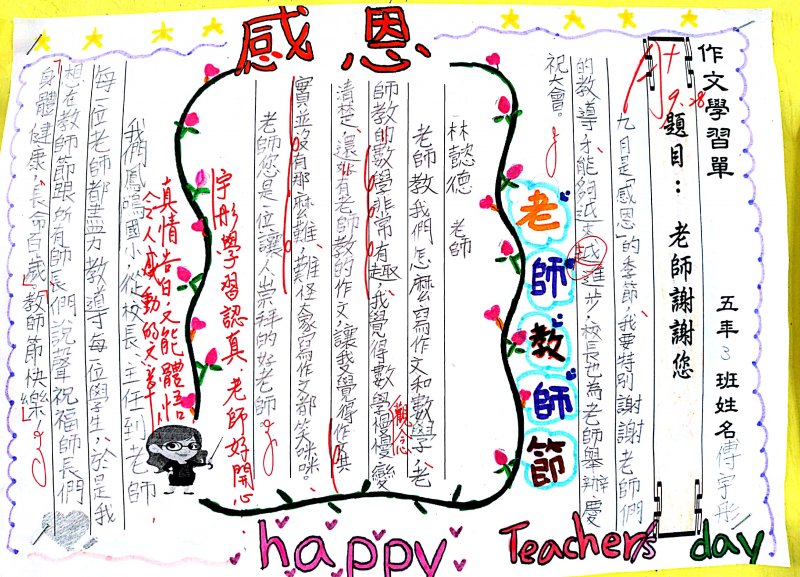 感恩
作文學習單
五年3班姓名傅宇彤
題目：老師謝謝您
A+
9.28
九月是「感恩」的季節，我要特別謝謝老師們
的教導才能夠越來越進步，校長也為老師舉辦慶
祝大會。
老師教師節
林懿德 老師
老師教我們怎麼寫作文和數學，老
師教的數學非常有趣，我覺得數學觀念變
清楚，還有老師教的作文，讓我覺得作文其
實並沒有那麼難，難怪大家寫作文都笑咪咪。
老師您是一位讓人崇拜的好老師。
宇彤學習認真，老師好開心
真情告白，又能體悟
令人感動的文章！
我們鳳鳴國小從校長、主任到老師
每一位老師都盡力教導每位學生，於是我
想在教師節跟所有師長們說聲祝福師長們
「身體健康，長命百歲，教師節快樂」
happy Teacher's day